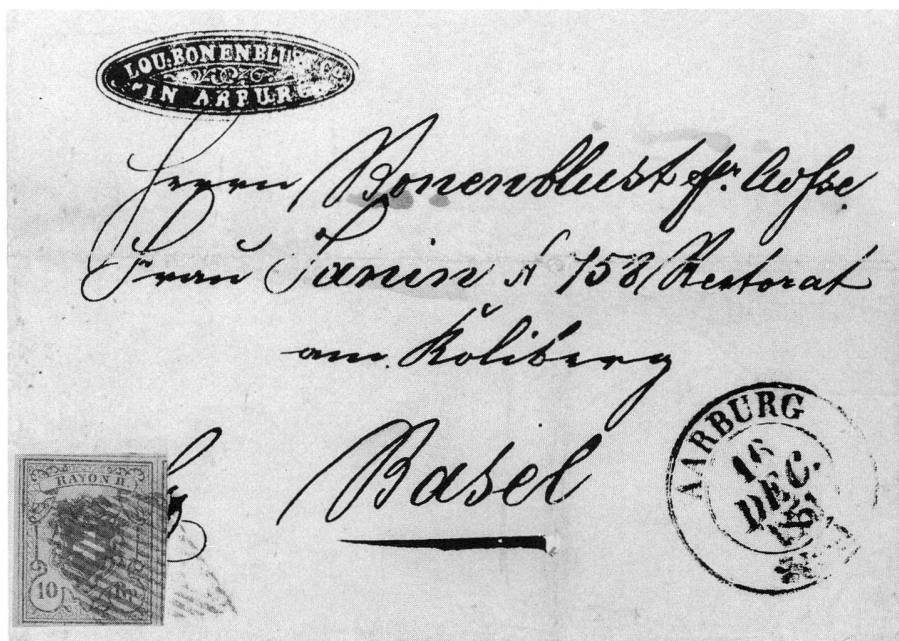 LOU: BONENBLUST
IN ARBURG
Herrn Bonenblust
Frau Janin N 758 Rectorat
am Koliberg
Basel
AARBURG
16
DEC.
RAYON II.
10 Rp